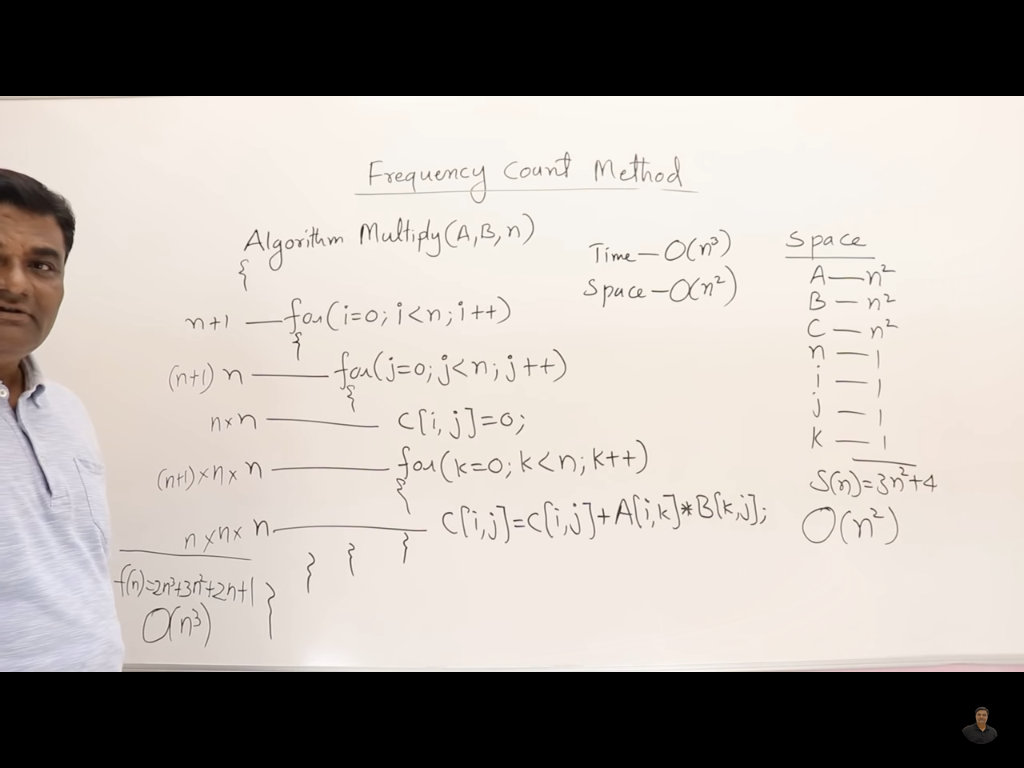 Frequency Count Method
Algorithm Multiply(A,B,n)
{
n+1 — for(i=0; i<n; i++)
{
(n+1) n — for(j=0; j<n; j++)
{
n×n — C[i,j]=0;
(n+1)×n×n — for(k=0; k<n; k++)
{
n×n×n — C[i,j]=C[i,j]+A[i,k]*B[k,j];
} } }
f(n)=2n³+3n²+2n+1 }
O(n³)
Time — O(n³)
Space — O(n²)
Space
A — n²
B — n²
C — n²
n — 1
i — 1
j — 1
k — 1
S(n)=3n²+4
O(n²)